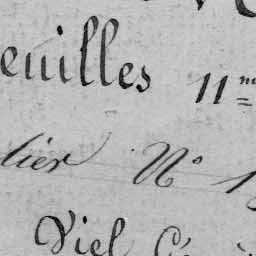 euilles 11me
lier N° 1
Viel